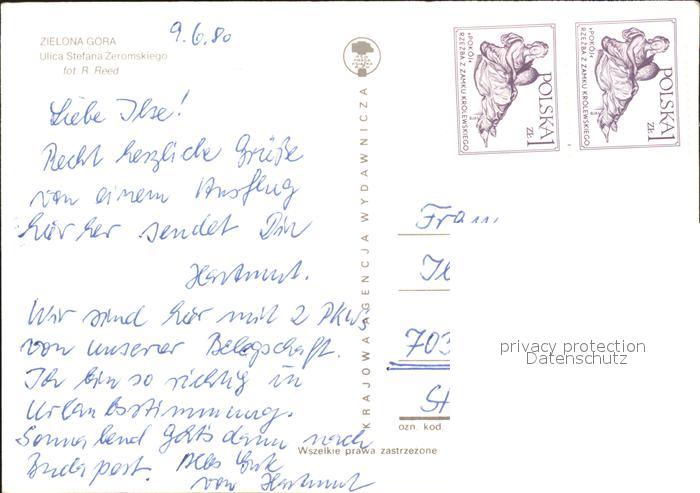 ZIELONA GÓRA
Ulica Stefana Żeromskiego
fot R. Reed
9.6.80
Liebe Ilse!
Recht herzliche Grüße
von einem Ausflug
hierher sendet Dir
Hartmut.
Wir sind hier mit 2 PKWs
von unserer Belegschaft.
Ich bin so richtig in
Urlaubsstimmung.
Sonnabend geht's dann nach
Budapest. Alles Gute
von Hartmut
KRAJOWA AGENCJA WYDAWNICZA
«POKÓJ»
RZEŹBA Z ZAMKU KRÓLEWSKIEGO
POLSKA 1 ZŁ
«POKÓJ»
RZEŹBA Z ZAMKU KRÓLEWSKIEGO
POLSKA 1 ZŁ
Frau
Il
703
St
ozn. kod
Wszelkie prawa zastrzeżone
privacy protection
Datenschutz